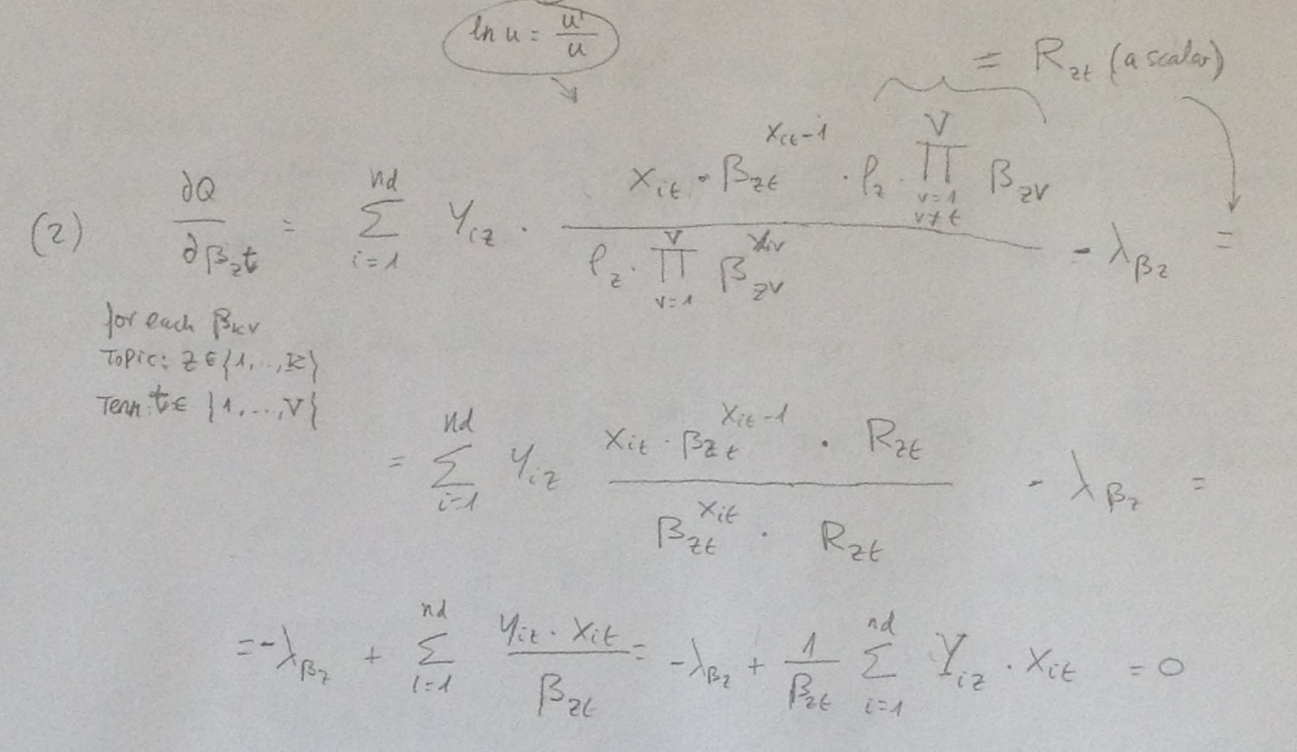 ln u = u'/u
= R_zt (a scalar)
(2) ∂Q/∂β_zt = Σ_{i=1}^{nd} Y_iz · (x_it · β_zt^{x_it-1} · ρ_z · ∏_{v=1, v≠t}^{V} β_zv) / (ρ_z · ∏_{v=1}^{V} β_zv^{x_iv}) - λ_βz =
for each β_kv
Topic: z ∈ {1,..,K}
Term: t ∈ {1,...,V}
= Σ_{i=1}^{nd} Y_iz (x_it · β_zt^{x_it-1} · R_zt) / (β_zt^{x_it} · R_zt) - λ_βz =
= -λ_βz + Σ_{i=1}^{nd} (Y_iz · x_it) / β_zt = -λ_βz + 1/β_zt Σ_{i=1}^{nd} Y_iz · x_it = 0